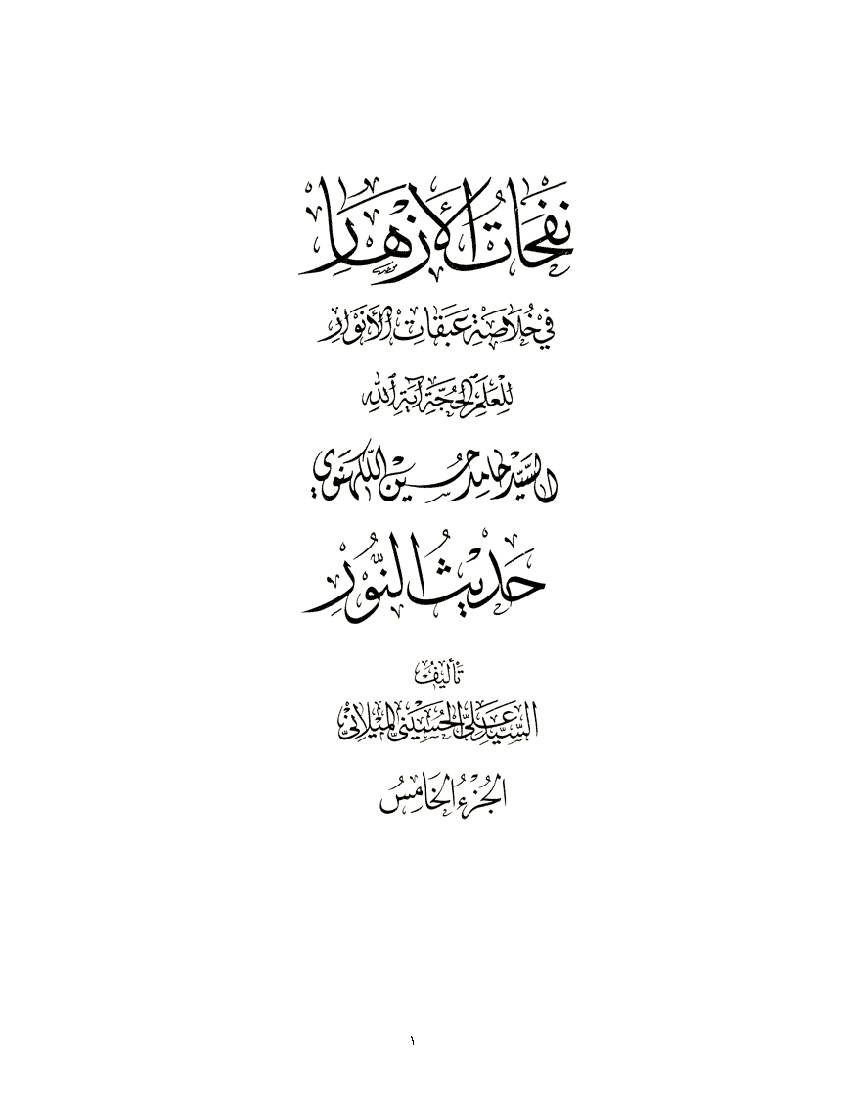 نفحات الأزهار
في خلاصة عبقات الأنوار
للعلم الحجة آية الله
السيد حامد حسين اللكهنوي
حديث النور
تأليف
السيد علي الحسيني الميلاني
الجزء الخامس
١